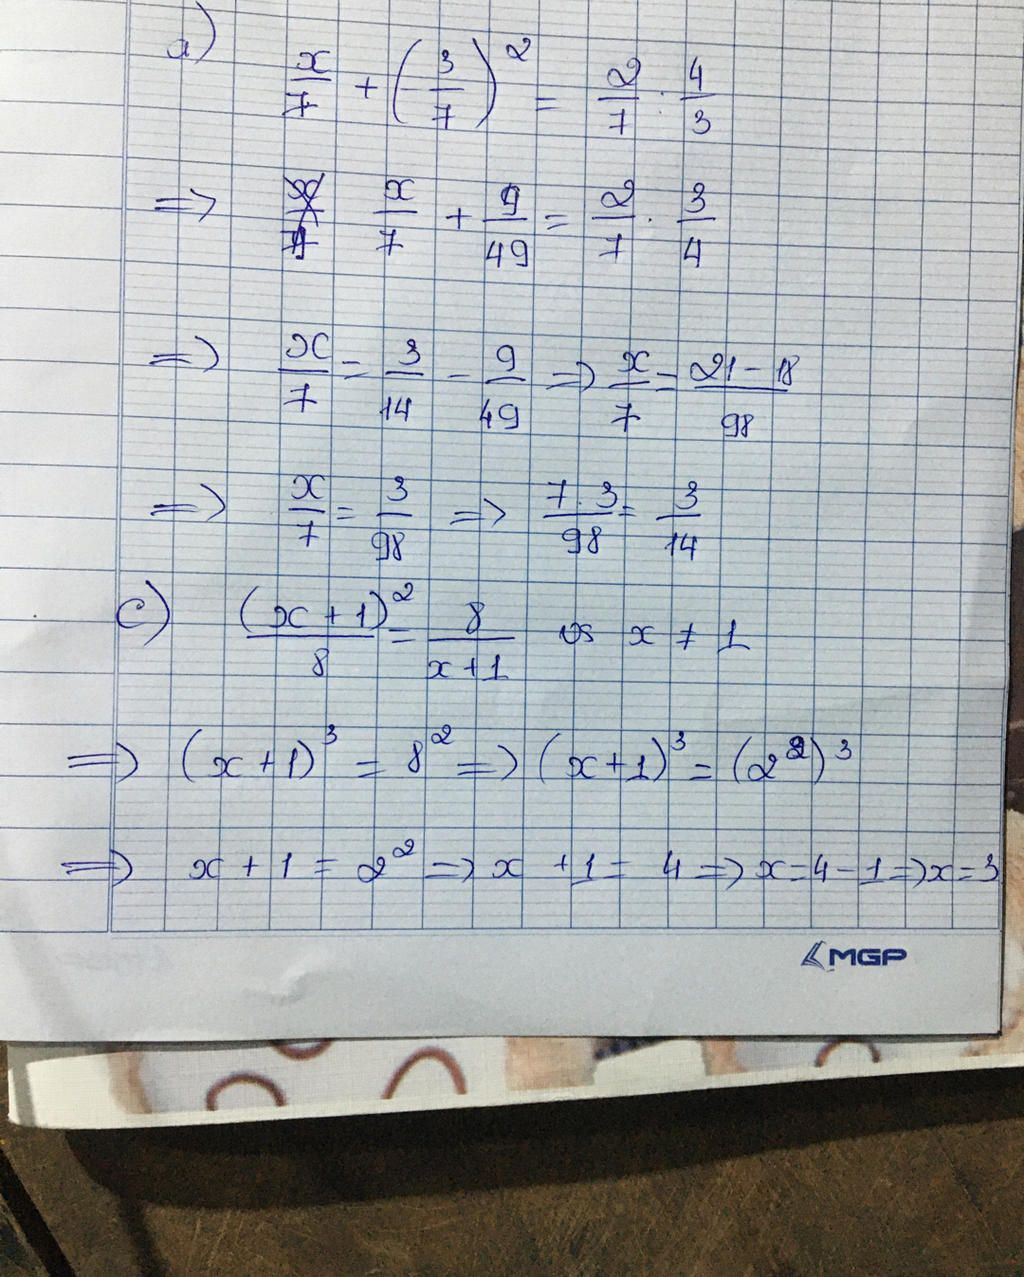 a) x/7 + (-3/7)^2 = 2/7 : 4/3
=> x/7 + 9/49 = 2/7 . 3/4
=> x/7 = 3/14 - 9/49 => x/7 = (21 - 18)/98
=> x/7 = 3/98 => (7 . 3)/98 = 3/14
c) (x + 1)^2/8 = 8/(x + 1) vs x ≠ 1
=> (x + 1)^3 = 8^2 => (x + 1)^3 = (2^2)^3
=> x + 1 = 2^2 => x + 1 = 4 => x = 4 - 1 => x = 3
MGP